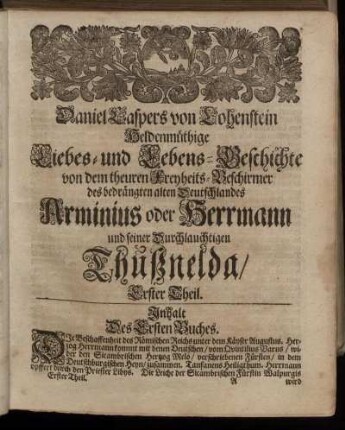 Daniel Caspers von Lohenstein
Heldenmüthige
Liebes- und Lebens-Geschichte
von dem theuren Freyheits-Beschirmer
des bedrängten alten Deutschlandes
Arminius oder Herrmann
und seiner Durchlauchtigen
Thußnelda/
Erster Theil.
Inhalt
Des Ersten Buches.
DIe Beschaffenheit des Römischen Reichs unter dem Käyser Augustus. Her-
zog Herrmann kommt mit denen Deutschen / vom Quintilius Varus / wi-
der den Sicambrischen Herzog Melo / verschriebenen Fürsten / in dem
Deutschburgischen Heyn / zusammen. Tanfanens Heiligthum. Herrmann
opffert durch den Priester Libys. Die Leiche der Sicambrischen Fürstin Walpurgis
Erster Theil. A wird